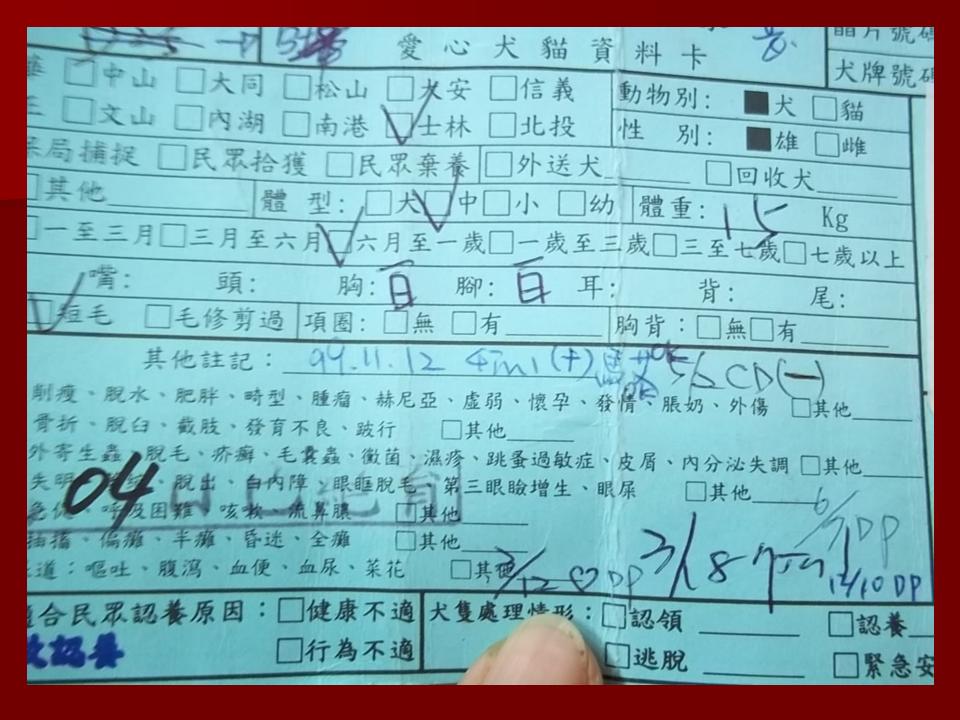 愛心犬貓資料卡 晶片號碼
犬牌號碼
□中山 □大同 □松山 □大安 □信義 動物別: ■犬 □貓
□文山 □內湖 □南港 □士林 □北投 性 別: ■雄 □雌
局捕捉 □民眾拾獲 □民眾棄養 □外送犬 □回收犬
□其他 體 型: □大 □中 □小 □幼 體重: 15 Kg
□一至三月 □三月至六月 □六月至一歲 □一歲至三歲 □三至七歲 □七歲以上
嘴: 頭: 胸: 白 腳: 白 耳: 背: 尾:
□短毛 □毛修剪過 項圈: □無 □有 胸背: □無 □有
其他註記: 99.11.12 CD(一)
削瘦、脫水、肥胖、畸型、腫瘤、赫尼亞、虛弱、懷孕、發情、脹奶、外傷 □其他
骨折、脫臼、截肢、發育不良、跛行 □其他
外寄生蟲、脫毛、疥癬、毛囊蟲、黴菌、濕疹、跳蚤過敏症、皮屑、內分泌失調 □其他
失明、脫出、白內障、眼眶脫毛、第三眼瞼增生、眼屎 □其他
04
呼吸困難、咳嗽、流鼻膿 □其他
抽搐、偏癱、半癱、昏迷、全癱 □其他
道:嘔吐、腹瀉、血便、血尿、菜花 □其他
3/12 DP 3/18 12/10 DP
適合民眾認養原因: □健康不適 犬隻處理情形: □認領 □認養
□行為不適 □逃脫 □緊急安